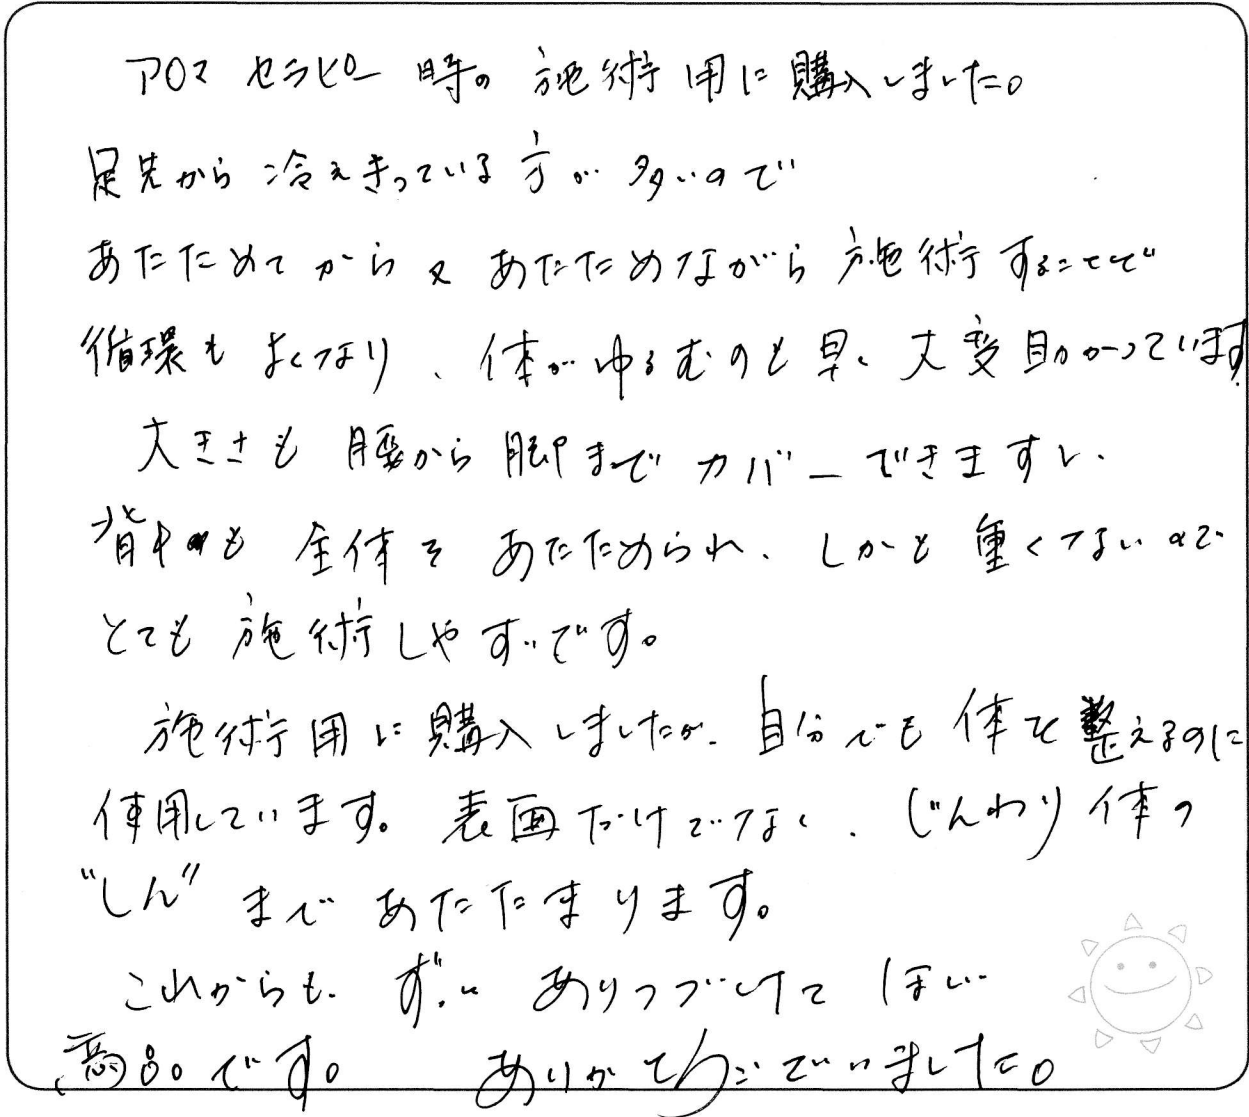 アロマセラピー時の施術用に購入しました。
足先から冷えきっている方が多いので
あたためてから又あたためながら施術することで
循環もよくなり、体がゆるむのも早く大変助かっています
大きさも腰から脚までカバーできますし、
背中も全体をあたためられ、しかも重くないので
とても施術しやすいです。
施術用に購入しましたが、自分でも体を整えるのに
使用しています。表面だけでなく、じんわり体の
"しん"まであたたまります。
これからも、ずっとありつづけてほしい
商品です。 ありがとうございました。